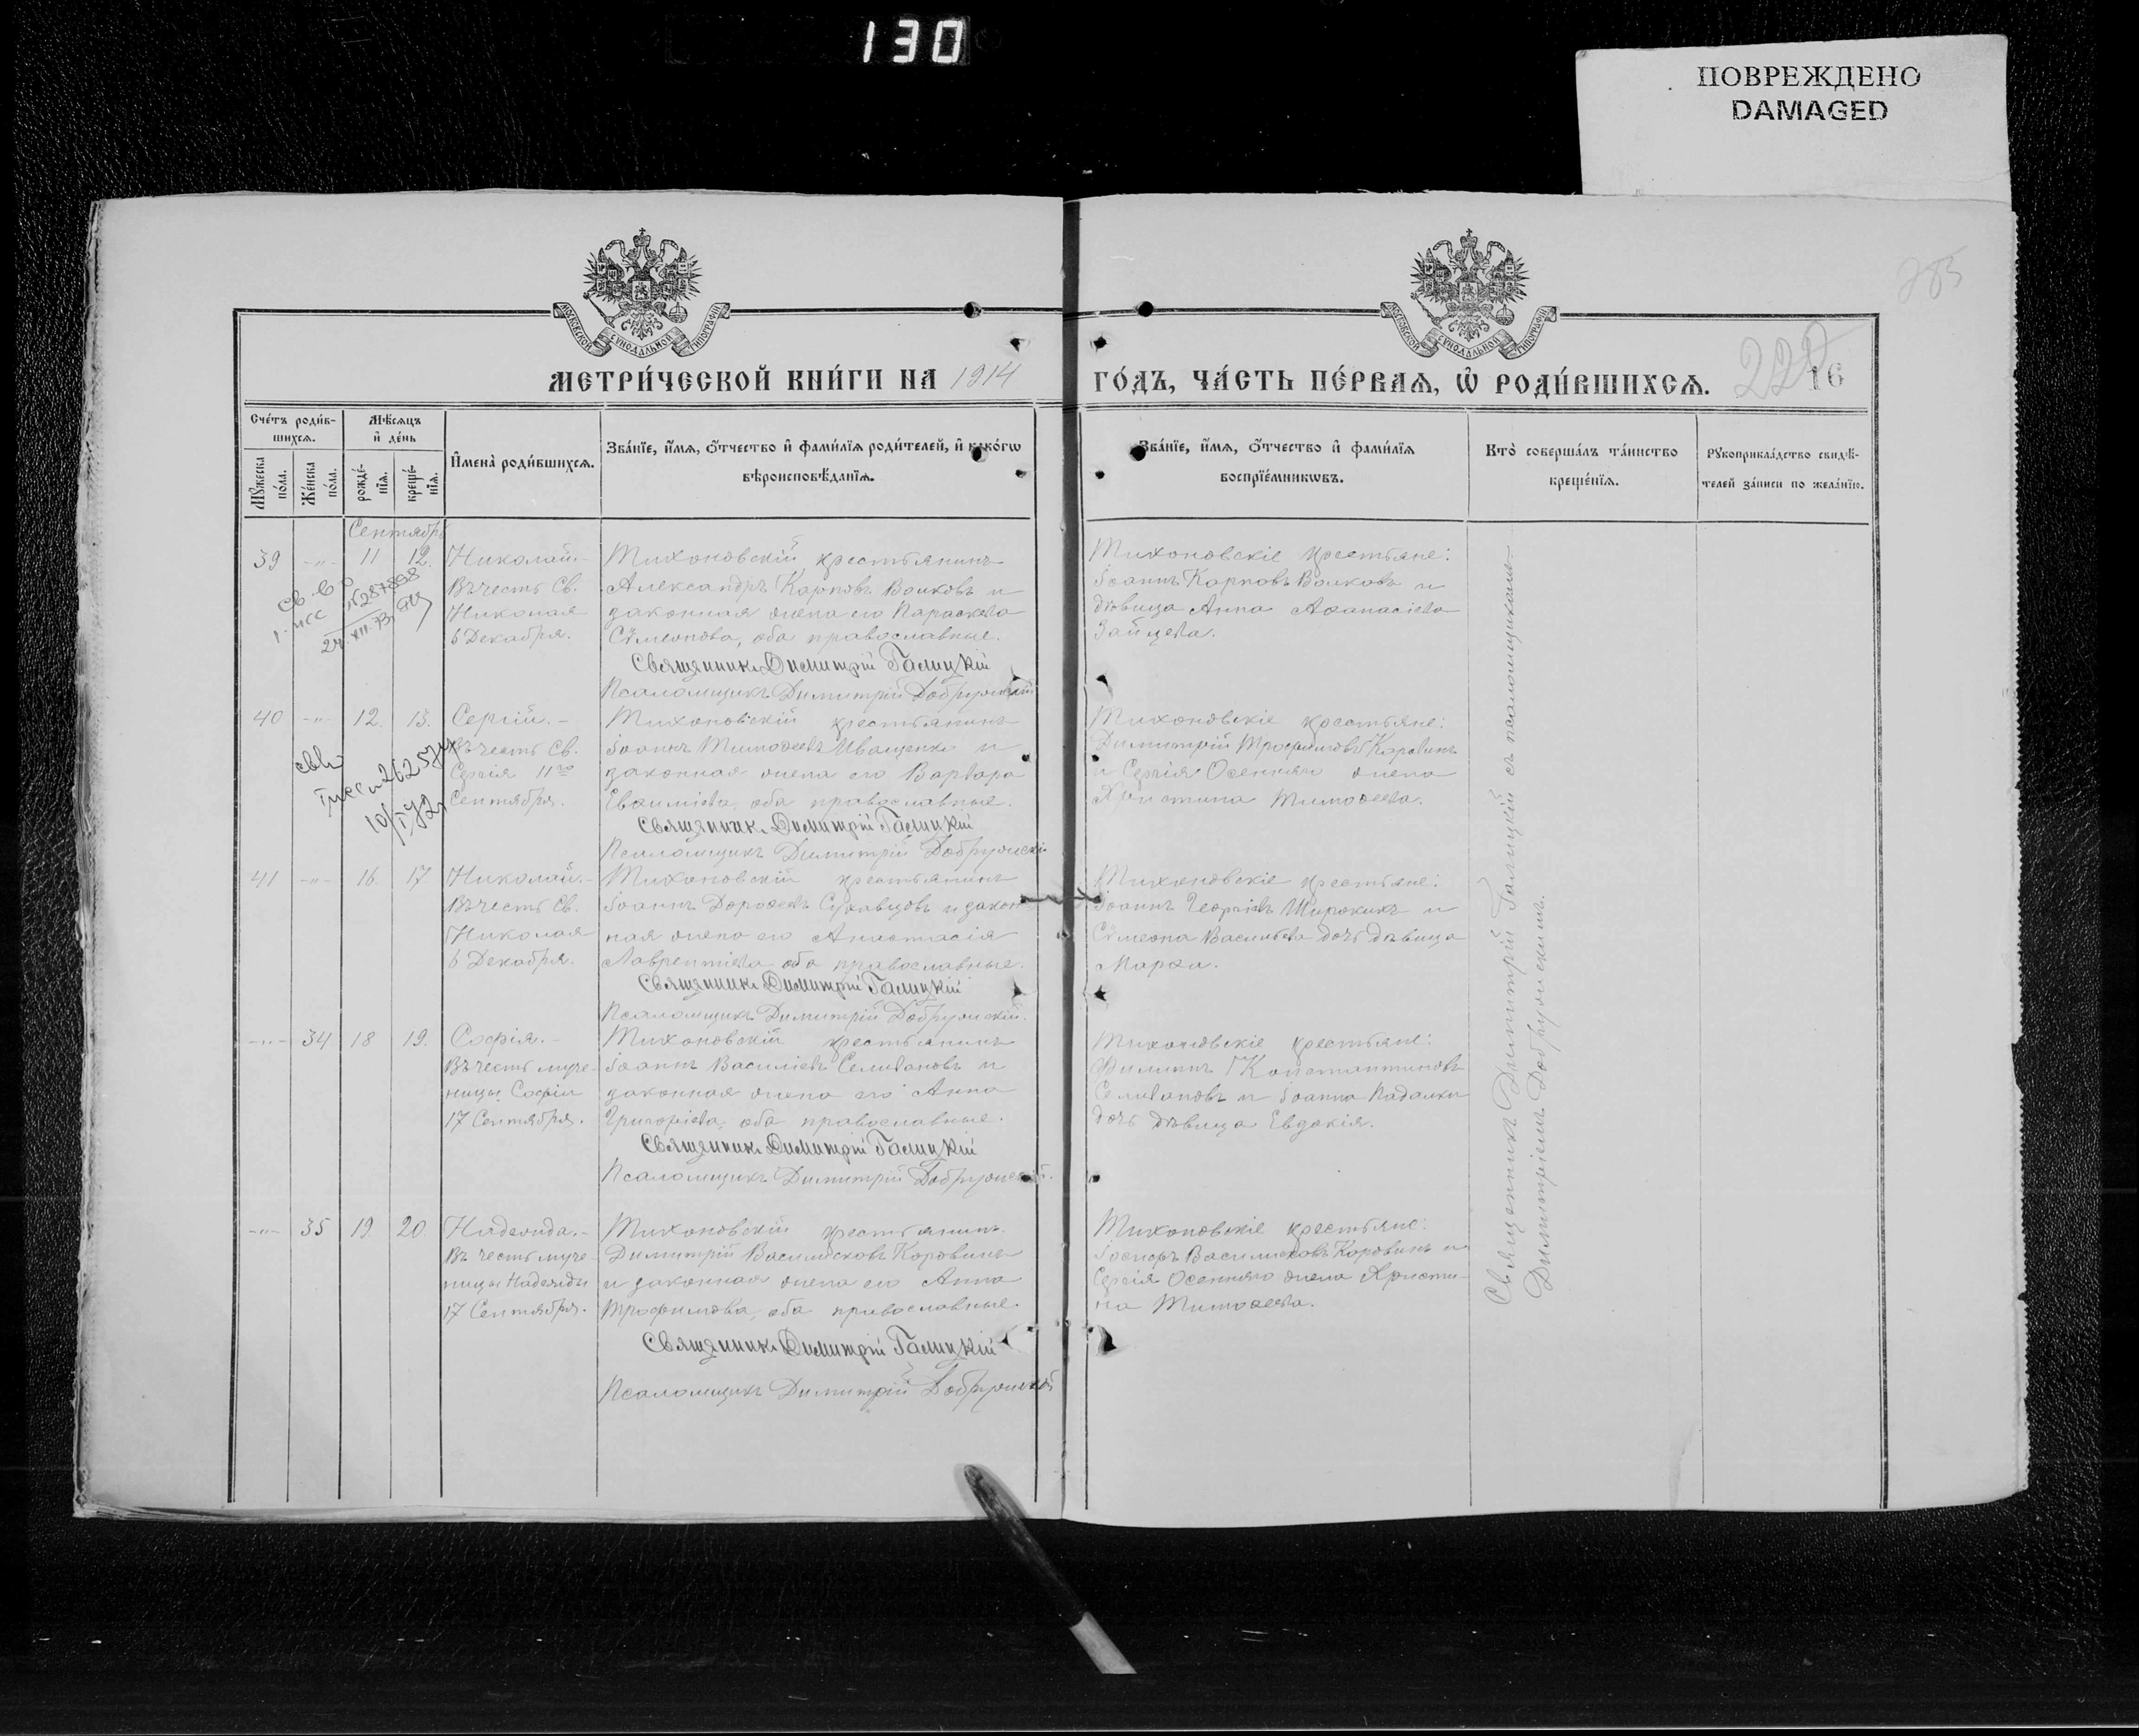 130
ПОВРЕЖДЕНО
DAMAGED
285
МОСКОВСКОЙ СѴНОДАЛЬНОЙ ТИПОГРАФІИ
МОСКОВСКОЙ СѴНОДАЛЬНОЙ ТИПОГРАФІИ
МЕТРИ́ЧЕСКОЙ КНИ́ГИ НА 1914
ГО́ДЪ, ЧА́СТЬ ПЕ́РВАѦ, Ѡ҆ РОДИ́ВШИХСѦ. 222 16
Сче́тъ роди́в-
шихсѧ.
Мѣ́сѧцъ
и҆ де́нь
Мꙋ́жеска
по́ла.
Же́нска
по́ла.
рожде́-
нїѧ.
креще́-
нїѧ.
И҆мена̀ роди́вшихсѧ.
Зва́нїе, и҆́мѧ, ѻ҆́тчество и҆ фами́лїѧ роди́телей, и҆ како́гѡ
вѣроисповѣ́данїѧ.
Зва́нїе, и҆́мѧ, ѻ҆́тчество и҆ фами́лїѧ
воспрїе́мникѡвъ.
Кто̀ соверша́лъ та́инство
креще́нїѧ.
Рꙋкоприкла́дство свидѣ́-
телей за́писи по жела́нїю.
Сентябрь
39 -"- 11 12. Николай.-
Въ честь Св.
Николая
6 Декабря.
Тихоновскій крестьянинъ
Александръ Карповъ Волковъ и
законная жена его Параскева
Сѵмеонова, оба православные.
Священникъ Димитрій Галицкій
Псаломщикъ Димитрій Добружскій
Тихоновскіе крестьяне:
Іоаннъ Карповъ Волковъ и
дѣвица Анна Аѳанасіева
Зайцева.
св-во
№287898
24.XII.73.
40 -"- 12. 13. Сергій.-
Въ честь Св.
Сергія 11го
Сентября.
Тихоновскій крестьянинъ
Іоаннъ Тимоѳеевъ Иващенко и
законная жена его Варвара
оба православные.
Священникъ Димитрій Галицкій
Псаломщикъ Димитрій Добружскій
Тихоновскіе крестьяне:
Димитрій Трофимовъ Коровинъ
и Сергія Осенняго жена
Христина Тимоѳеева.
41 -"- 16. 17 Николай.-
Въ честь Св.
Николая
6 Декабря.
Тихоновскій крестьянинъ
Іоаннъ Дороѳеевъ и закон-
ная жена его Анастасія
Лаврентіева оба православные.
Священникъ Димитрій Галицкій
Псаломщикъ Димитрій Добружскій.
Тихоновскіе крестьяне:
Іоаннъ Георгіевъ Широкихъ и
Сѵмеона Васильева дочь дѣвица
Марѳа.
-"- 34 18 19. Софія.-
Въ честь муче-
ницы Софіи
17 Сентября.
Тихоновскій крестьянинъ
Іоаннъ Василіевъ Селивановъ и
законная жена его Анна
Григоріева, оба православные.
Священникъ Димитрій Галицкій
Псаломщикъ Димитрій Добружскій.
Тихоновскіе крестьяне:
Филиппъ Константиновъ
Селивановъ и Іоанна Падалки
дочь дѣвица Евдокія.
-"- 35 19. 20. Надежда.-
Въ честь муче-
ницы Надежды
17 Сентября.
Тихоновскій крестьянинъ
Димитрій Василисковъ Коровинъ
и законная жена его Анна
Трофимова, оба православные.
Священникъ Димитрій Галицкій
Псаломщикъ Димитрій Добружскій
Тихоновскіе крестьяне:
Іосифъ Василисковъ Коровинъ и
Сергія Осенняго жена Христи-
на Тимоѳеева.
Священникъ Димитрій Галицкій съ псаломщикомъ
Димитріемъ Добружскимъ.